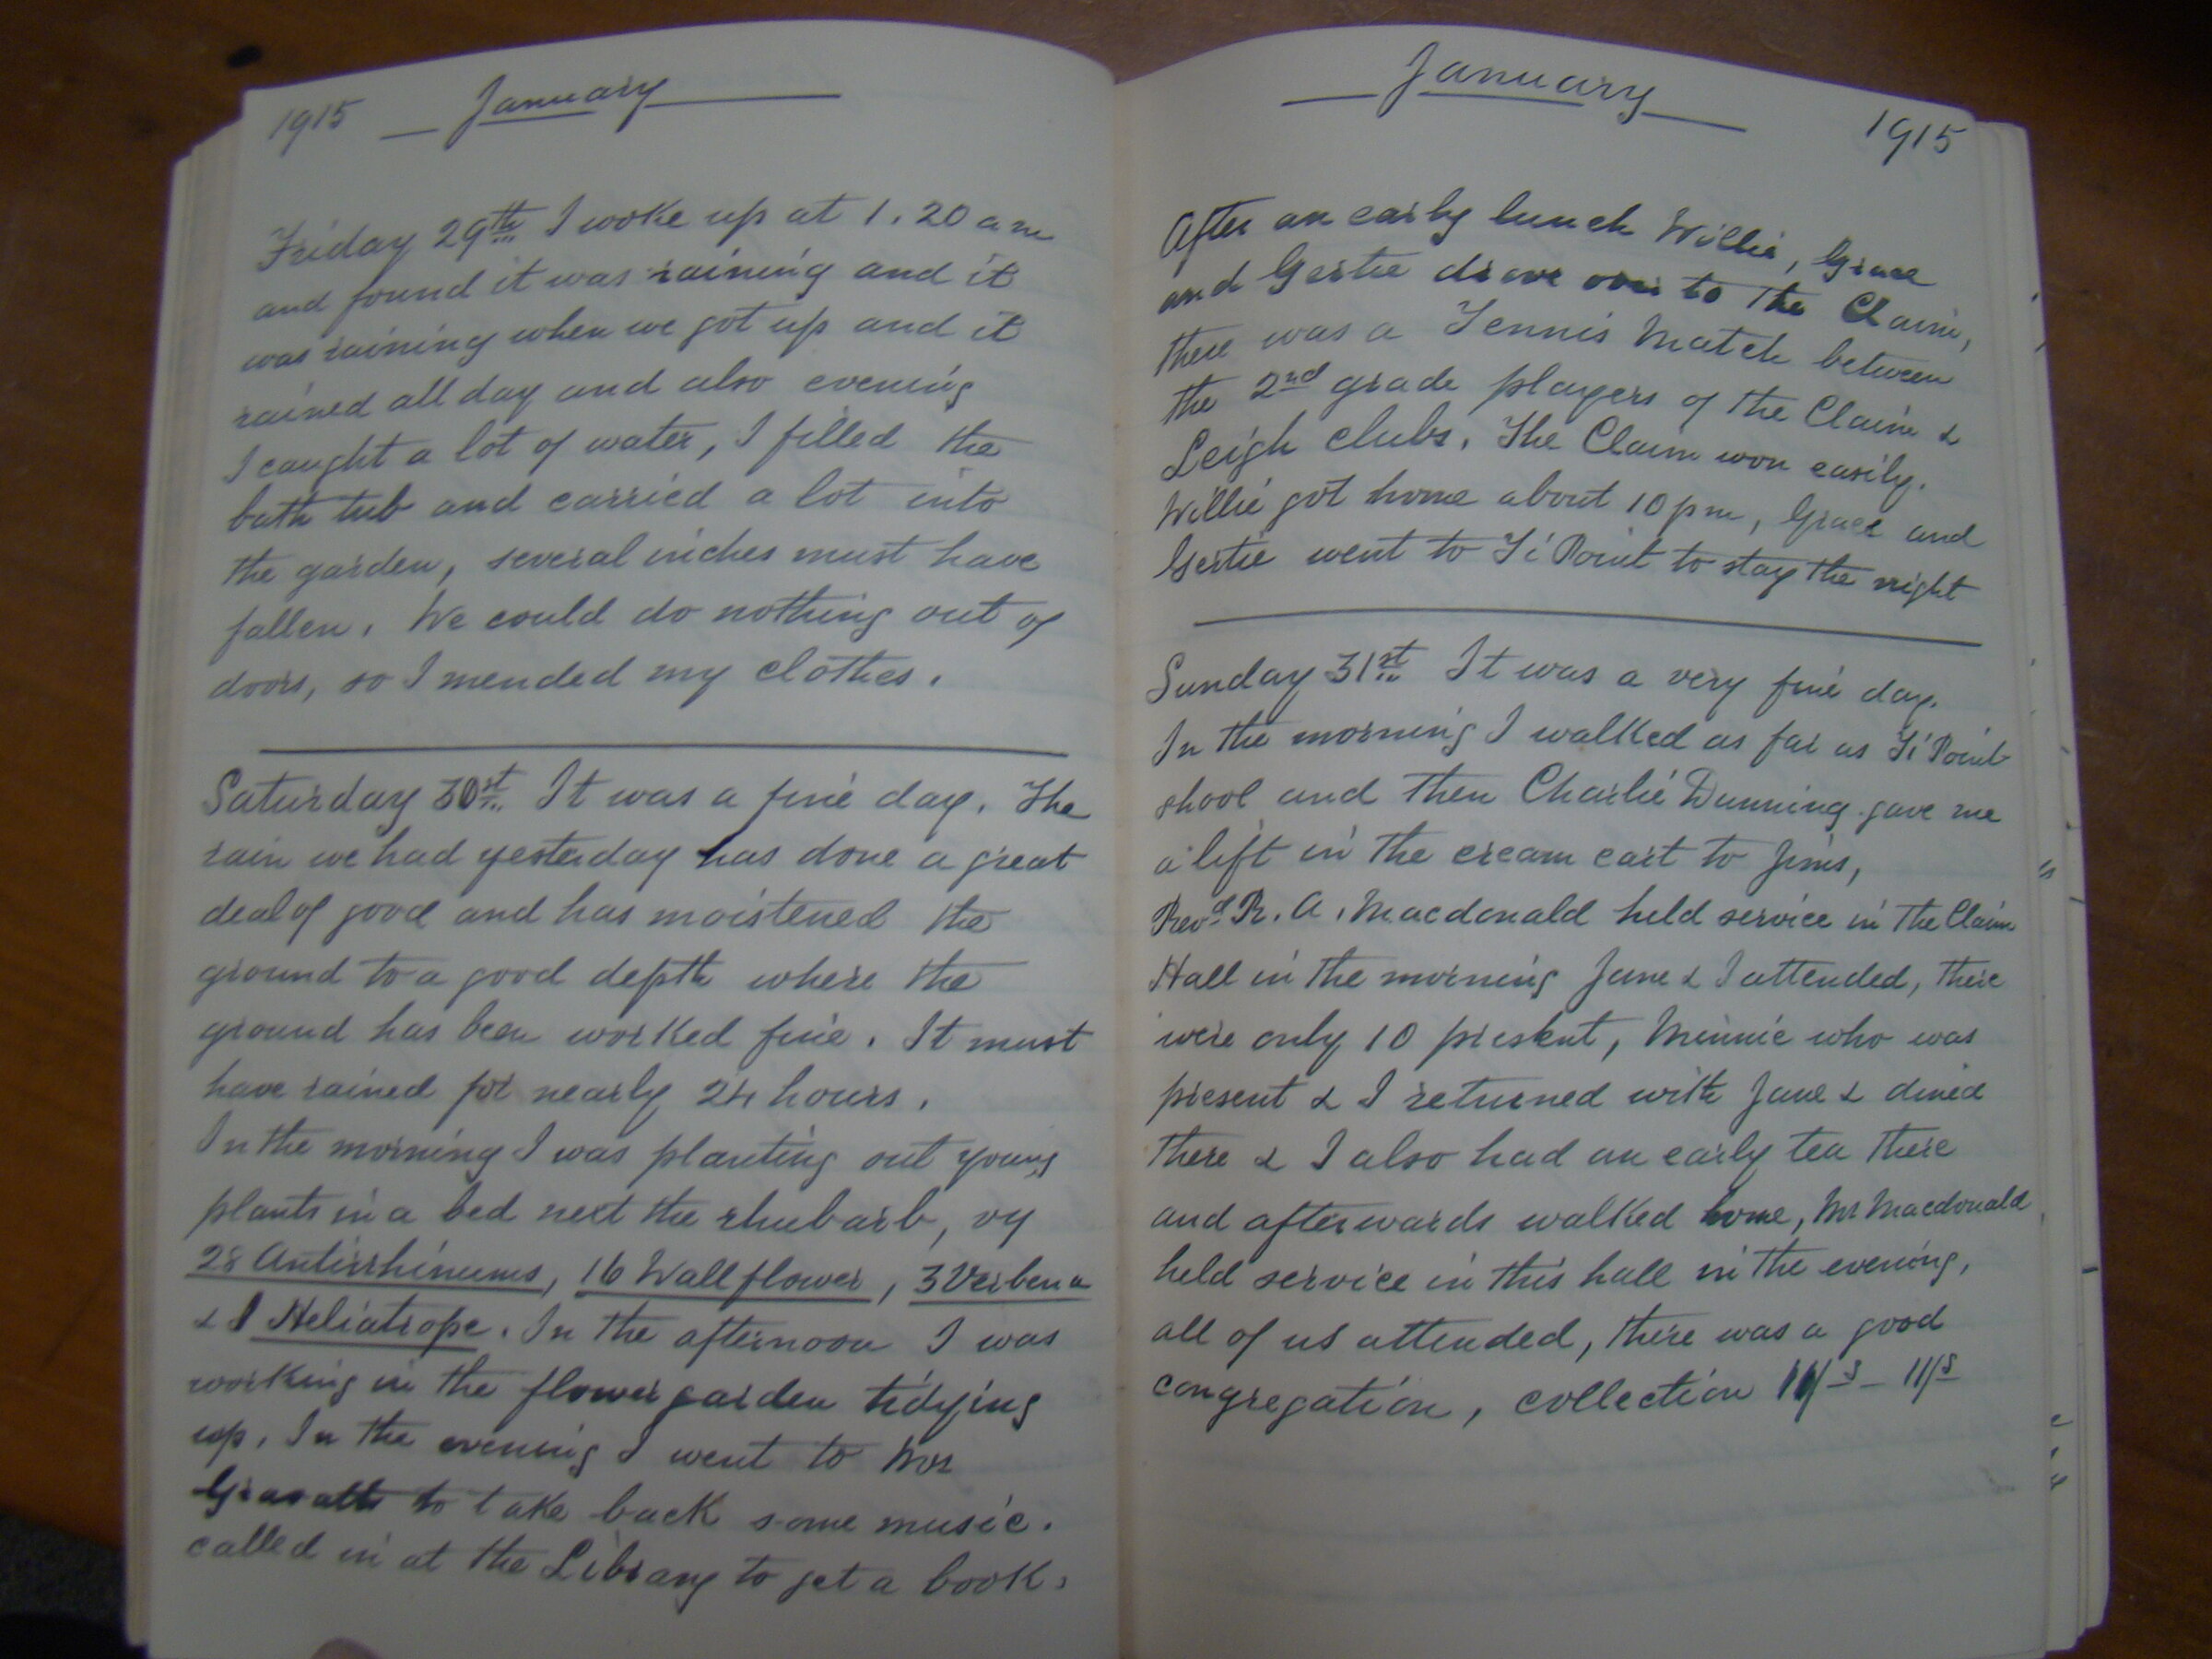 1915 January
Friday 29th I woke up at 1.20 a m
and found it was raining and it
was raining when we got up and it
rained all day and also evening
I caught a lot of water, I filled the
bath tub and carried a lot into
the garden, several inches must have
fallen. We could do nothing out of
doors, so I mended my clothes.
Saturday 30st It was a fine day. The
rain we had yesterday has done a great
deal of good and has moistened the
ground to a good depth where the
ground has been worked fine. It must
have rained for nearly 24 hours.
In the morning I was planting out young
plants in a bed next the rhubarb, vy
28 Antirrhinums, 16 Wallflower, 3 Verbena
& 1 Heliatrope. In the afternoon I was
working in the flower garden tidying
up. In the evening I went to Mrs
to take back some music.
called in at the Library to get a book.
January 1915
After an early lunch Willie, Grace
and Gertie drove over to the Claim,
there was a Tennis Match between
the 2nd grade players of the Claim &
Leigh clubs. The Claim won easily.
Willie got home about 10 pm, Grace and
Gertie went to Ti Point to stay the night
Sunday 31st It was a very fine day.
In the morning I walked as far as Ti Point
shool and then Charlie Dunning gave me
a lift in the cream cart to Jims,
Revd R. A. Macdonald held service in the Claim
Hall in the morning Jane & I attended, there
were only 10 present, Minnie who was
present & I returned with Jane & dined
there & I also had an early tea there
and afterwards walked home, Mr Macdonald
held service in this hall in the evening,
all of us attended, there was a good
congregation, collection 11/s - 11/s